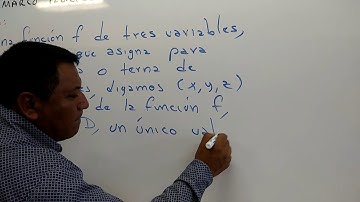 MARCO
na función f de tres variables,
que asigna para
s o terna de
es, digamos (x, y, z)
de la función f,
D, un único val